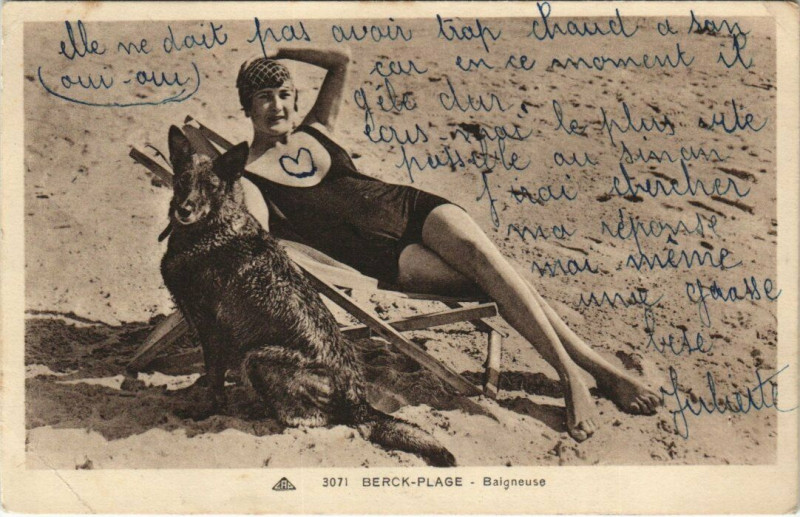 elle ne doit pas avoir trop chaud a son
(oui-oui) car en ce moment il
gèle dur
écris moi le plus vite
possible ou sinon
j'irai chercher
ma réponse
moi même
une grosse
bise
Juliette
3071 BERCK-PLAGE - Baigneuse